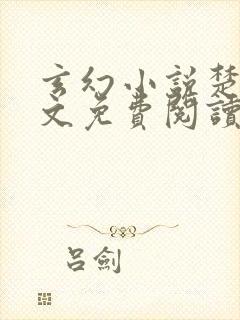 玄幻小説楚
文免費閱讀
吕劍